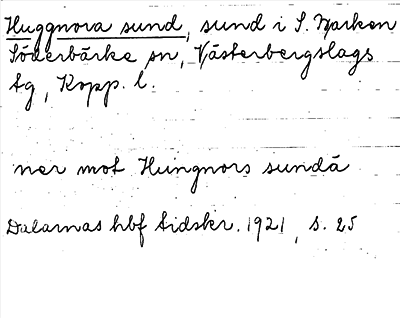 Huggnora sund, sund i S. Barken
Söderbärke sn, Västerbergslags
tg, Kopp. l.
ner mot Hungnors sundä
Dalarnas hbf tidskr. 1921, s. 25